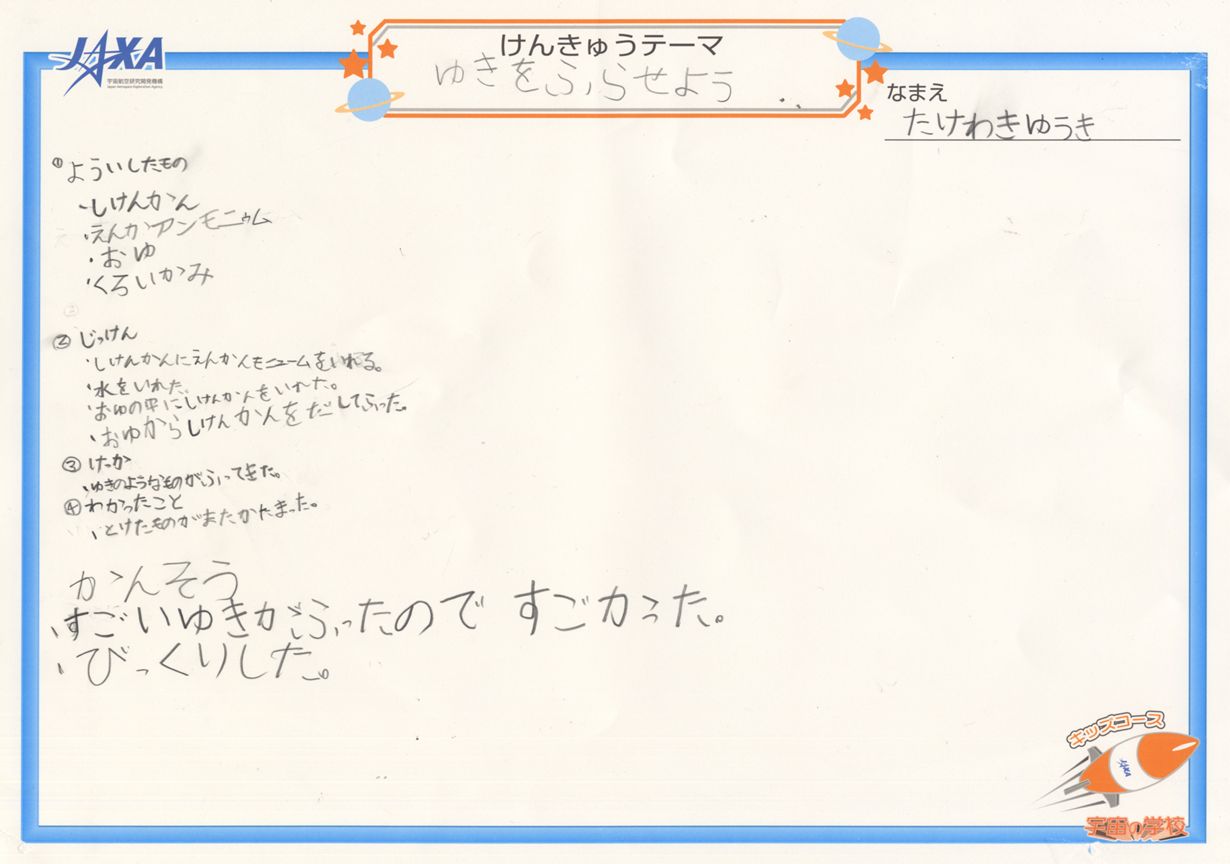 JAXA
宇宙航空研究開発機構
Japan Aerospace Exploration Agency
けんきゅうテーマ
ゆきをふらせよう
なまえ
たけわきゆうき
①よういしたもの
・しけんかん
・えんかアンモニゥム
・おゆ
・くろいかみ
②じっけん
・しけんかんにえんかんモニュームをいれる。
・水をいれた。
・おゆの中にしけんかんをいれた。
・おゆからしけんかんをだしてふった。
③けっか
・ゆきのようなものがふってきた。
④わかったこと
・とけたものがまたかたまった。
かんそう
・すごいゆきがふったのですごかった。
・びっくりした。
キッズコース
JAXA
宇宙の学校